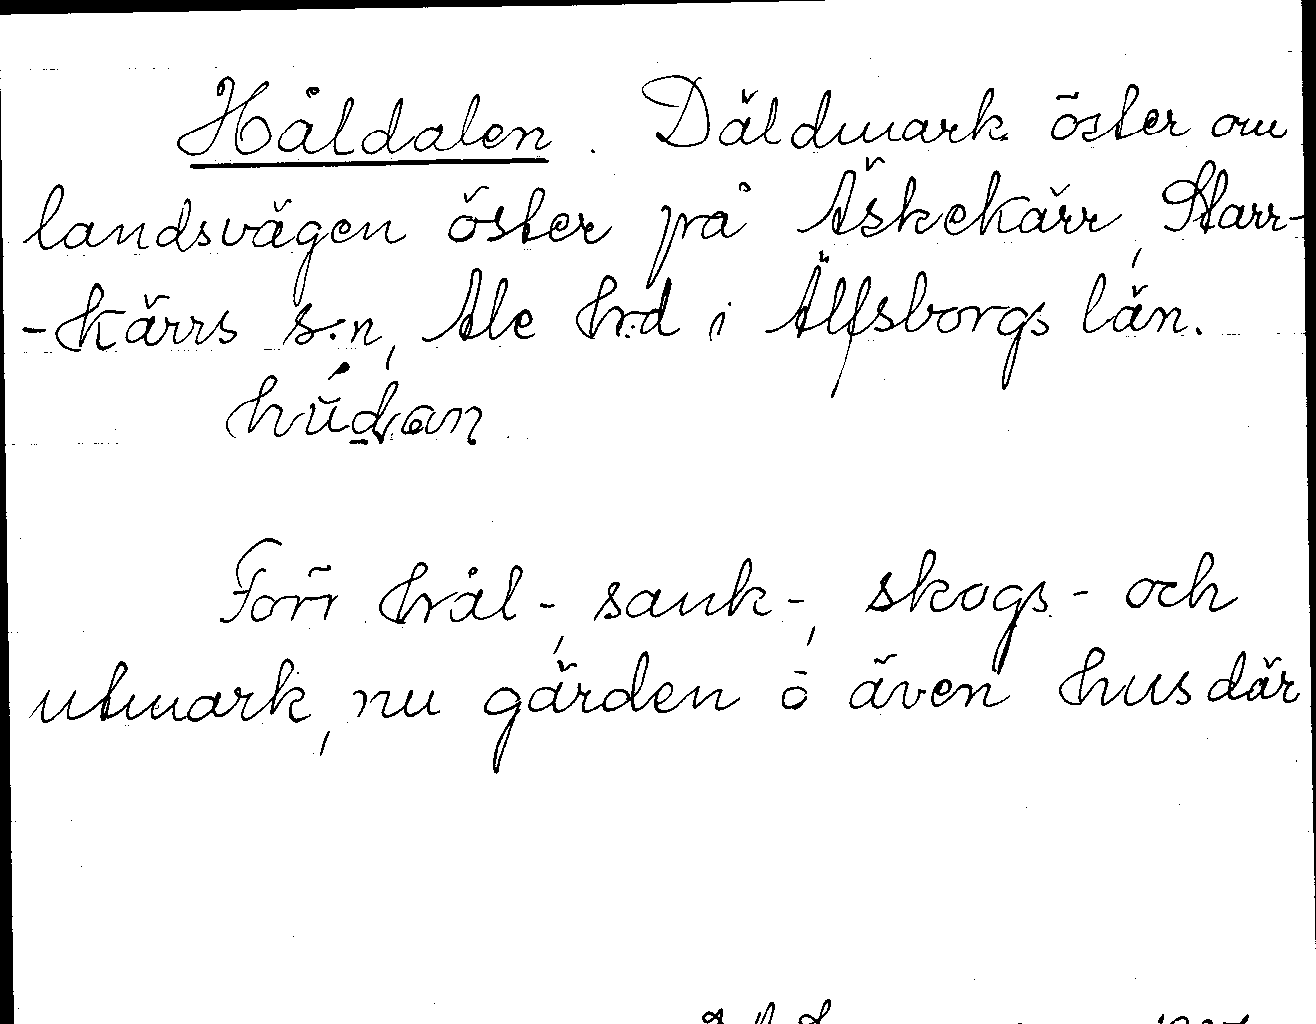 Håldalen. Däldmark öster om
landsvägen öster på Äskekärr, Starr-
-kärrs s:n, Ale h:d i Älfsborgs län.
Förr hål-, sank-, skogs- och
utmark, nu gärden o även hus där